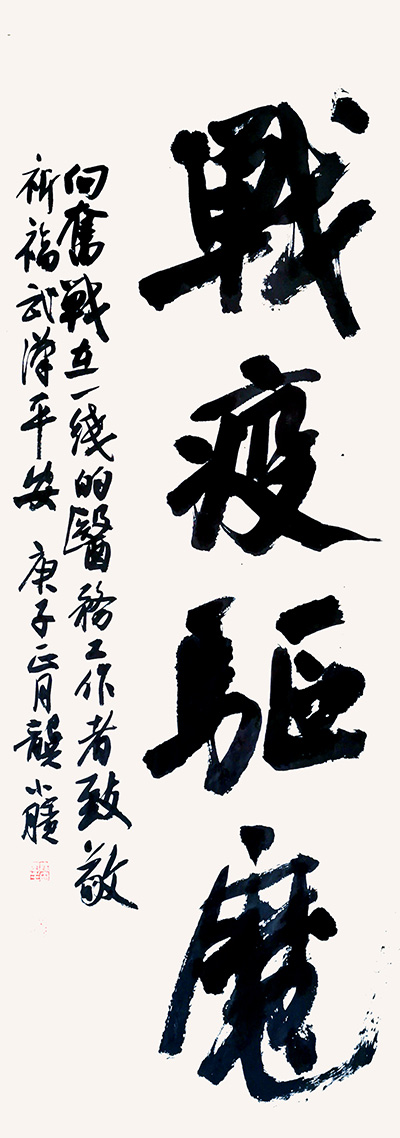 戰疫驅魔
向奮戰在一綫的醫務工作者致敬
祈福武漢平安 庚子正月龔小臏